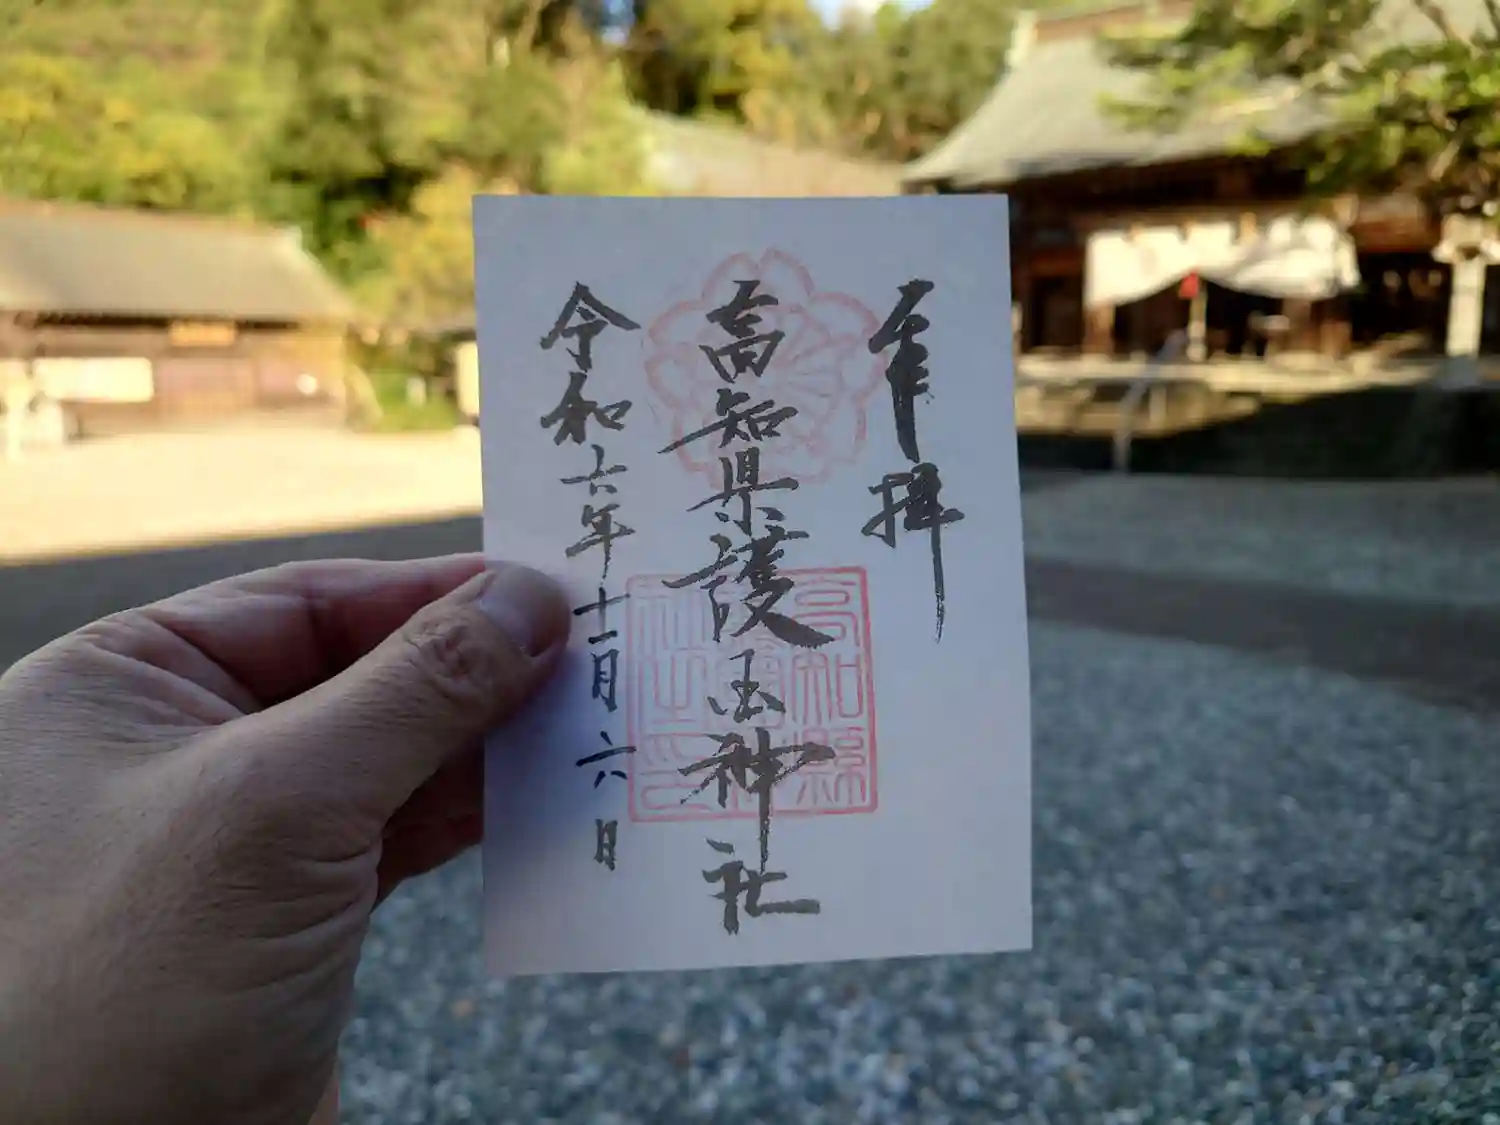 奉拝
高知県護国神社
令和六年十一月六日
高知縣護國神社之印